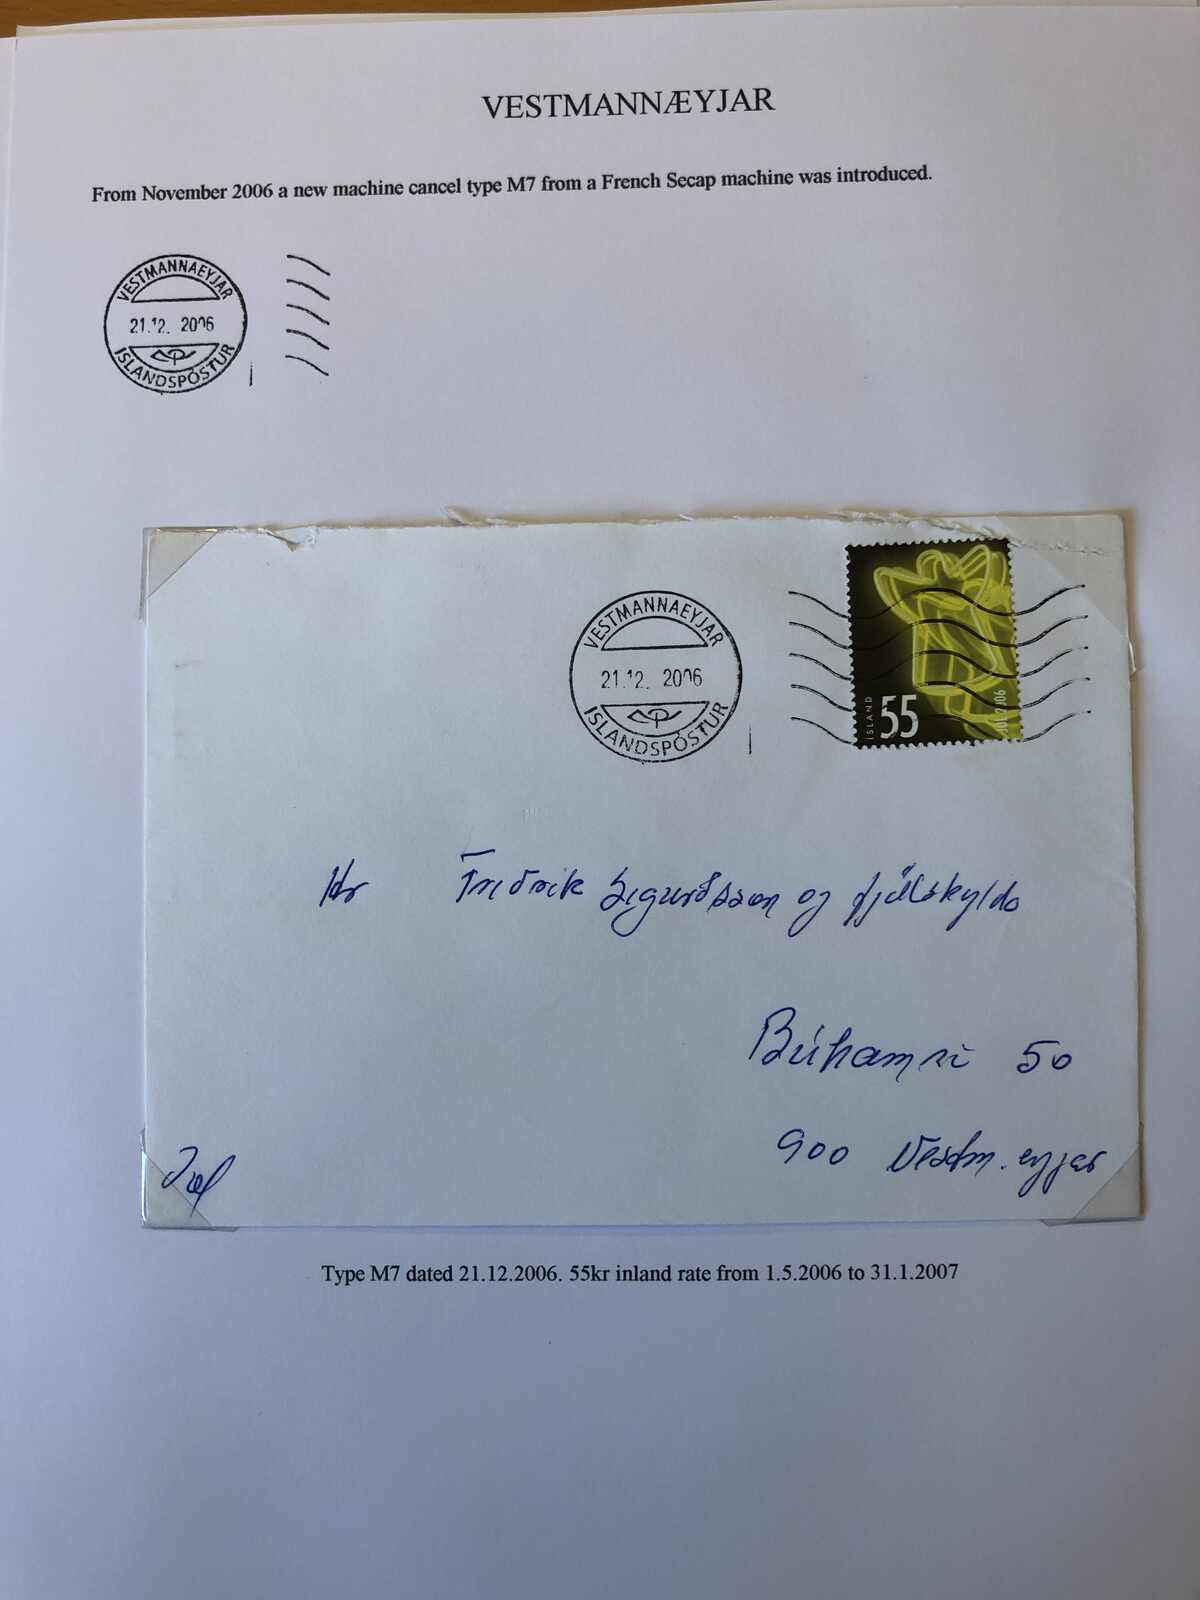 VESTMANNÆYJAR
From November 2006 a new machine cancel type M7 from a French Secap machine was introduced.
VESTMANNAEYJAR
21.12. 2006
ÍSLANDSPÓSTUR
VESTMANNAEYJAR
21.12. 2006
ÍSLANDSPÓSTUR
ÍSLAND
55
JÓL / 06
Hr Friðrik Sigurðsson og fjölskylda
Búhamri 50
900 Vestm.eyjar
Jól
Type M7 dated 21.12.2006. 55kr inland rate from 1.5.2006 to 31.1.2007